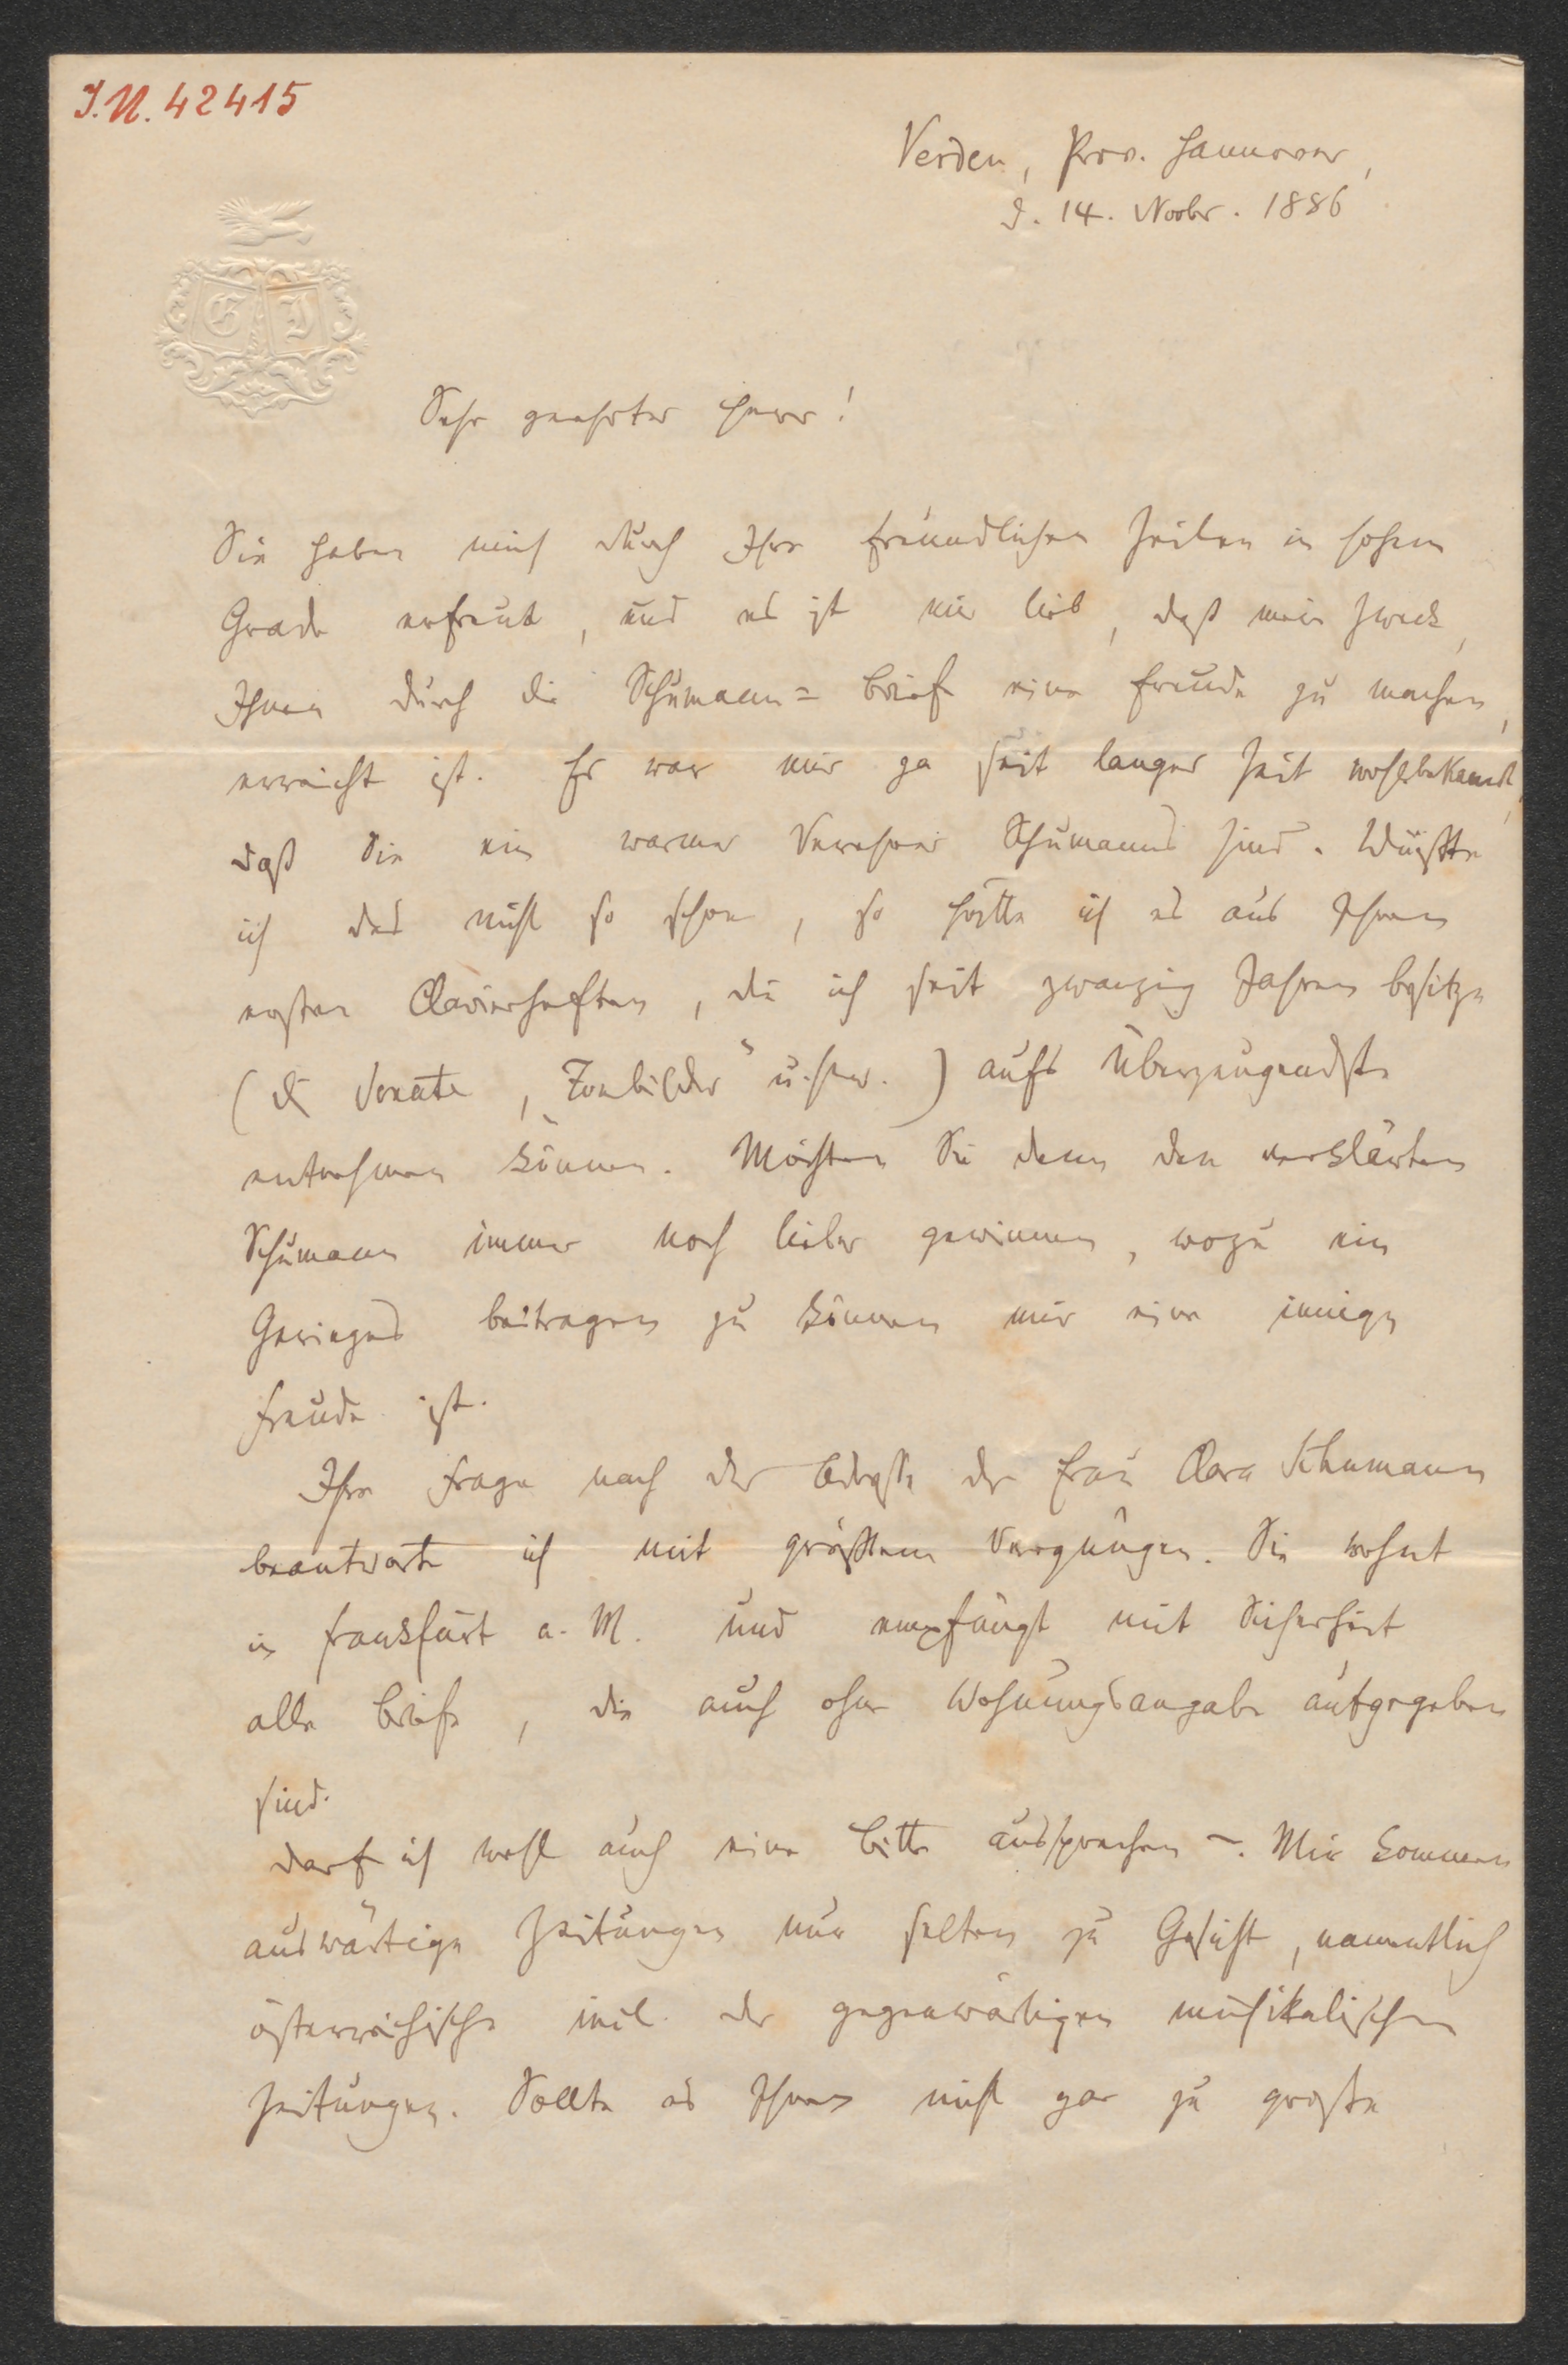 I.N. 42415
Verden, Prov. Hannover,
d. 14. Novbr. 1886
G J
Sehr geehrter Herr!
Sie haben mich durch Ihre freundlichen Zeilen in hohem
Grade erfreut, und es ist mir lieb, daß mein Zweck,
Ihnen durch die Schumann=Briefe eine Freude zu machen,
erreicht ist. Es war mir ja seit langer Zeit wohlbekannt,
daß Sie ein warmer Verehrer Schumanns sind. Wüßte
ich das nicht so schon, so hätte ich es aus Ihren
ersten Clavierheften, die ich seit zwanzig Jahren besitze
(die Sonate, „Tonbilder“ u.s.w.) aufs Überzeugendste
entnehmen können. Möchten Sie denn den verklärten
Schumann immer noch lieber gewinnen, wozu ein
Geringes beitragen zu können mir eine innige
Freude ist.
Ihre Frage nach der Adresse der Frau Clara Schumann
beantworte ich mit größtem Vergnügen. Sie wohnt
in Frankfurt a. M. und empfängt mit Sicherheit
alle Briefe, die auch ohne Wohnungsangabe aufgegeben
sind.
Darf ich wohl auch eine Bitte aussprechen –. Mir kommen
auswärtige Zeitungen nur selten zu Gesicht, namentlich
österreichische incl. der gegenwärtigen musikalischen
Zeitungen. Sollte es Ihnen nicht gar zu große